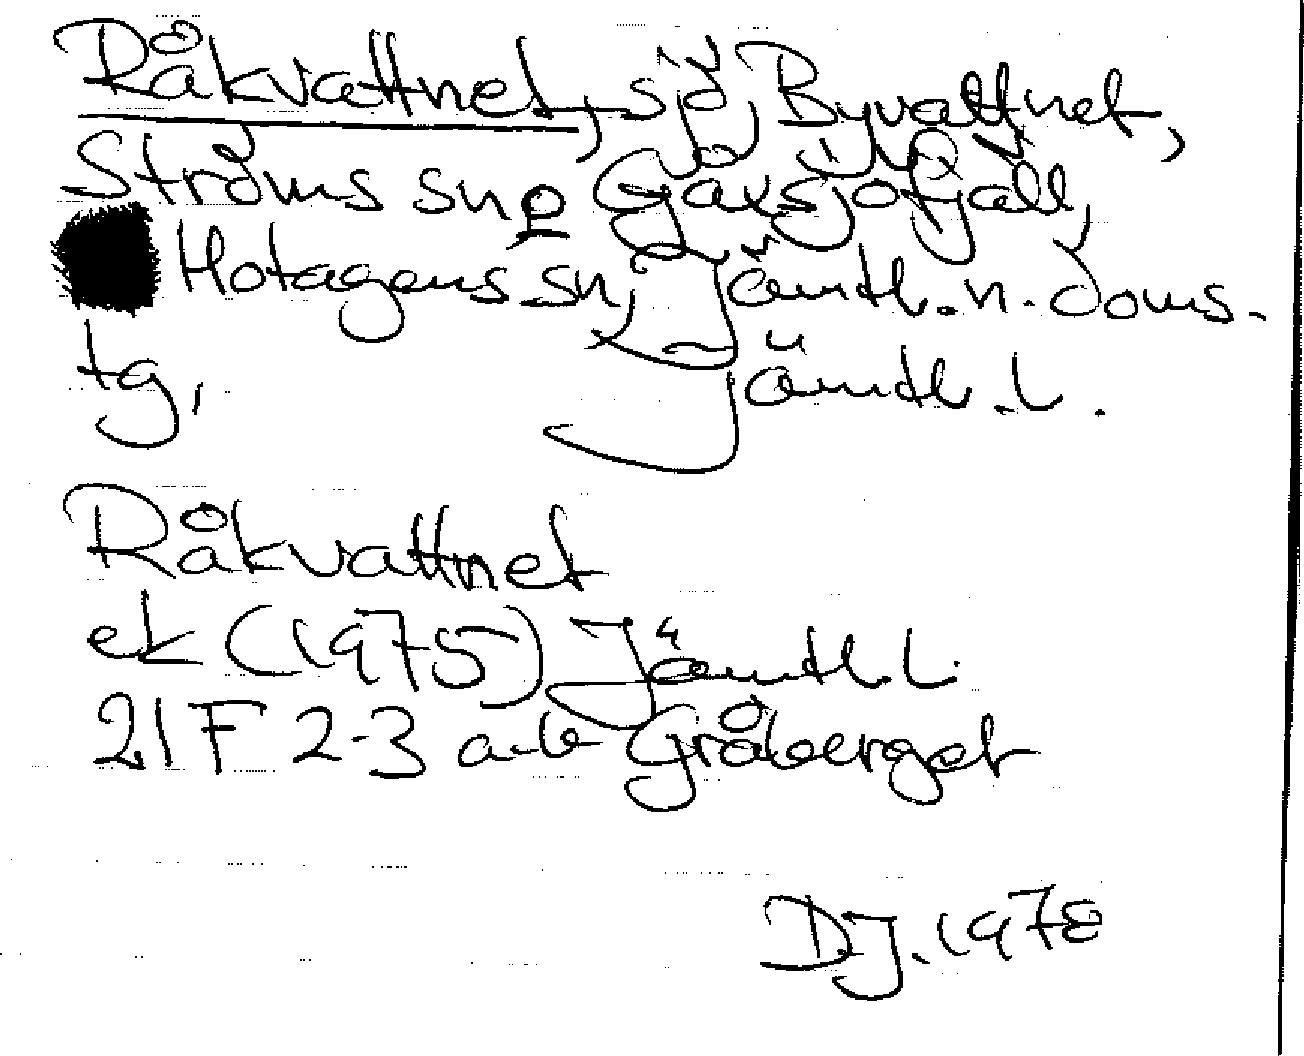 Råkvattnet, sjö, Byvattnet,
Ströms sn o Gåxsjöfjäll,
Hotagens sn, Jämtl. n. doms.
tg, Jämtl. l.
Råkvattnet
ek (1975) Jämtl. l.
21F 2-3 a-b Gråberget
DJ. 1978